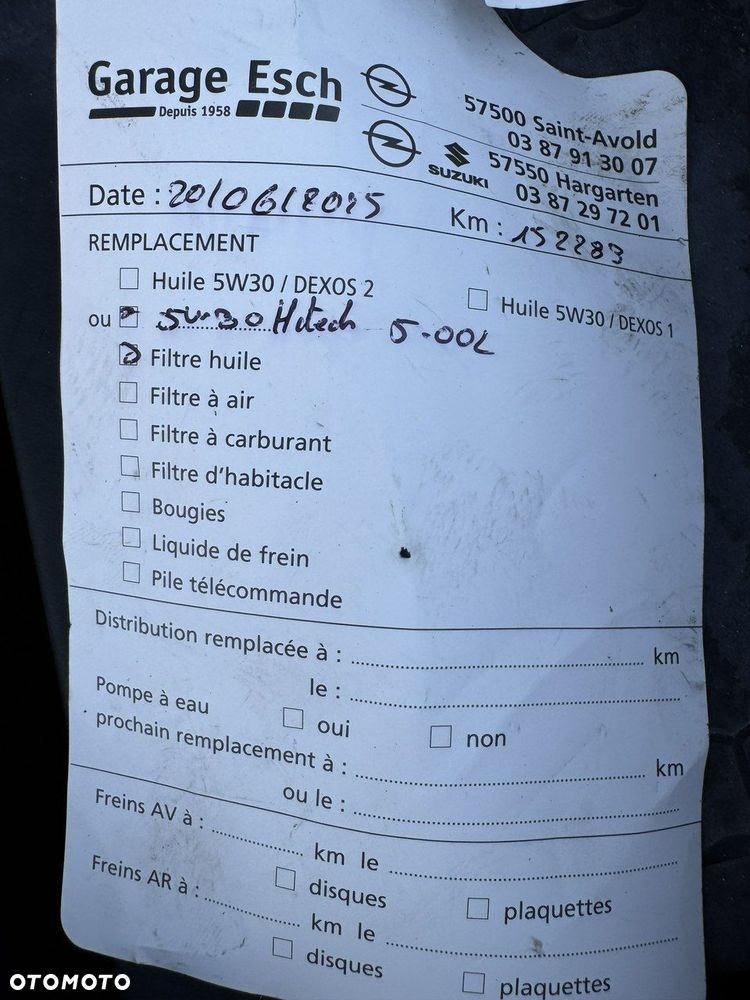 Garage Esch
Depuis 1958
57500 Saint-Avold
03 87 91 30 07
SUZUKI
57550 Hargarten
03 87 29 72 01
Date : 20/06/2025
Km : 152283
REMPLACEMENT
Huile 5W30 / DEXOS 2
Huile 5W30 / DEXOS 1
ou 5W30 Hitech 5.00L
Filtre huile
Filtre à air
Filtre à carburant
Filtre d'habitacle
Bougies
Liquide de frein
Pile télécommande
Distribution remplacée à : km
le :
Pompe à eau oui non
prochain remplacement à : km
ou le :
Freins AV à : km le
disques plaquettes
Freins AR à : km le
disques plaquettes
OTOMOTO